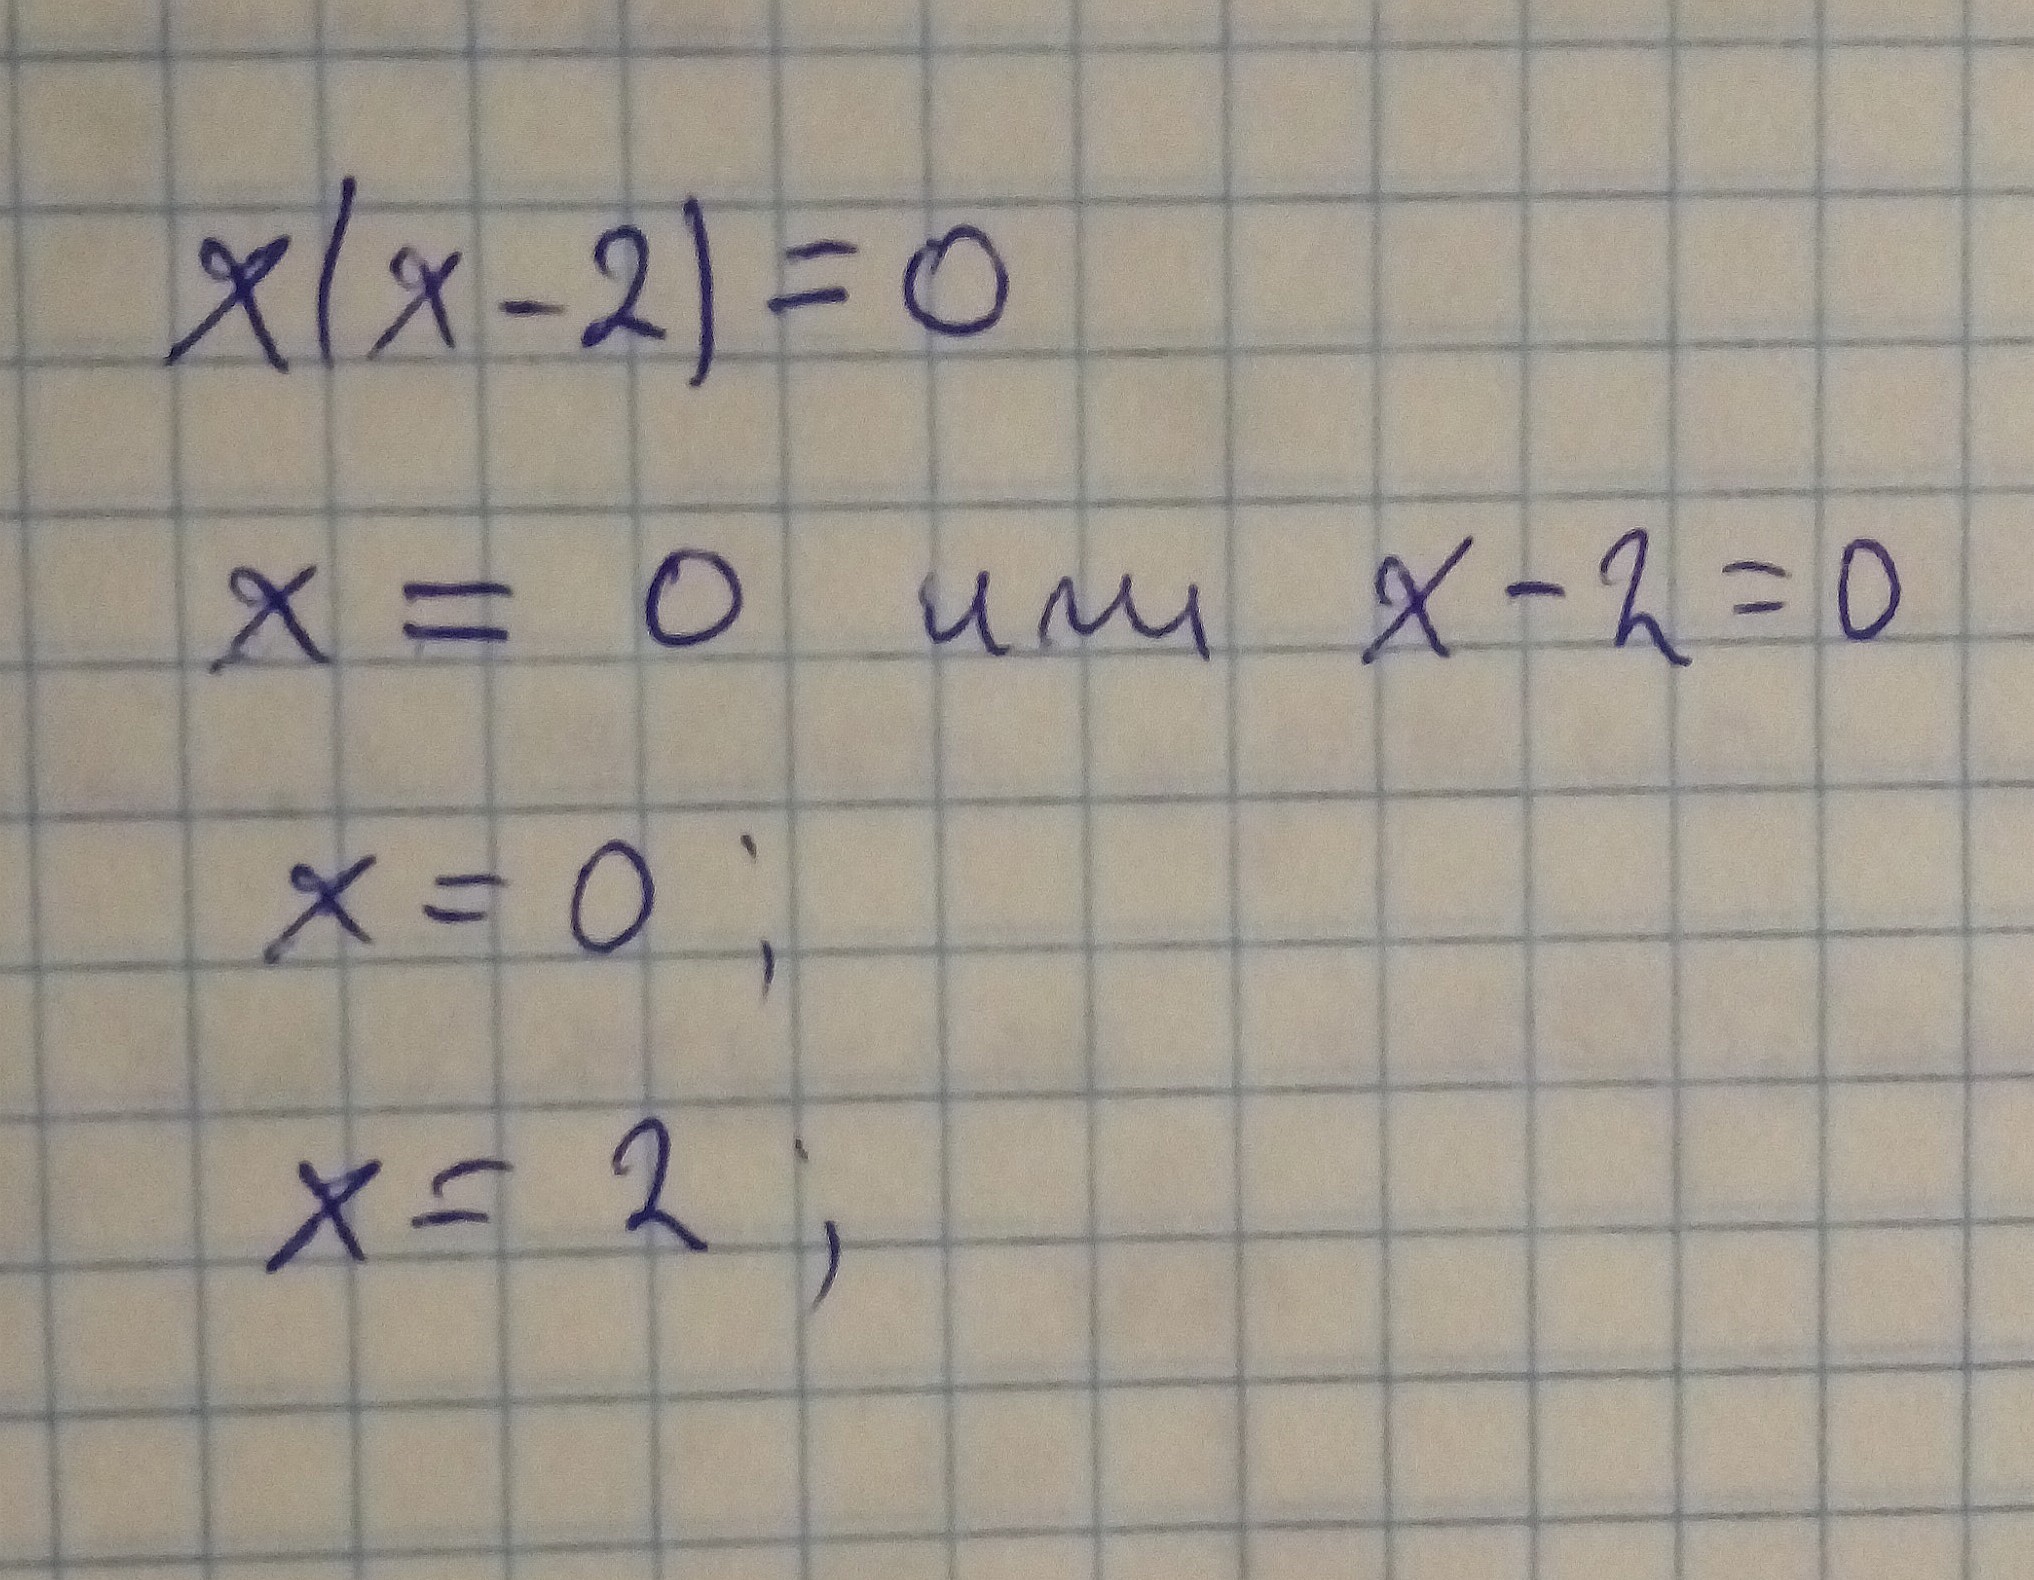 x(x-2)=0
x = 0 или x-2=0
x=0;
x=2;